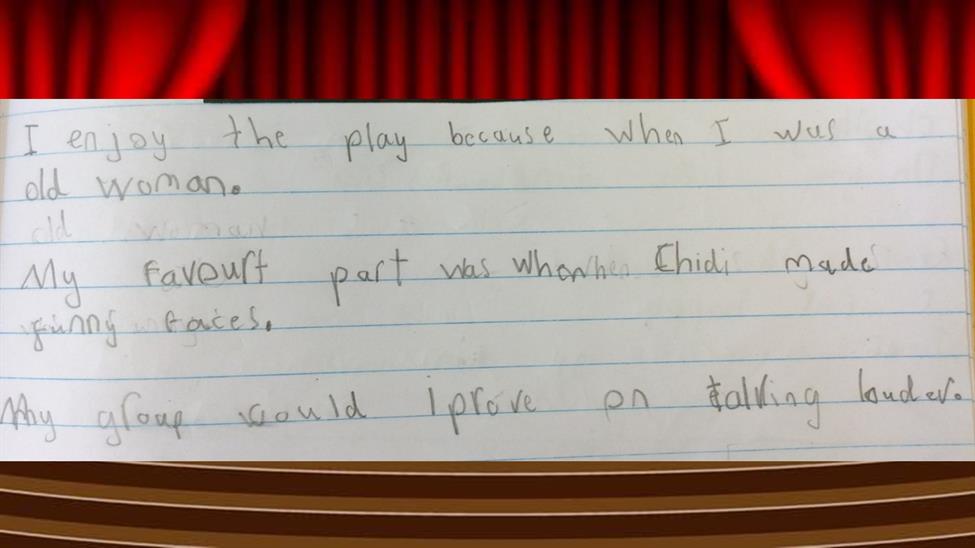 I enjoy the play because when I was a
old woman.
old woman
My favourt part was when Chidi made
funny faces.
My group would iprove on talking louder.